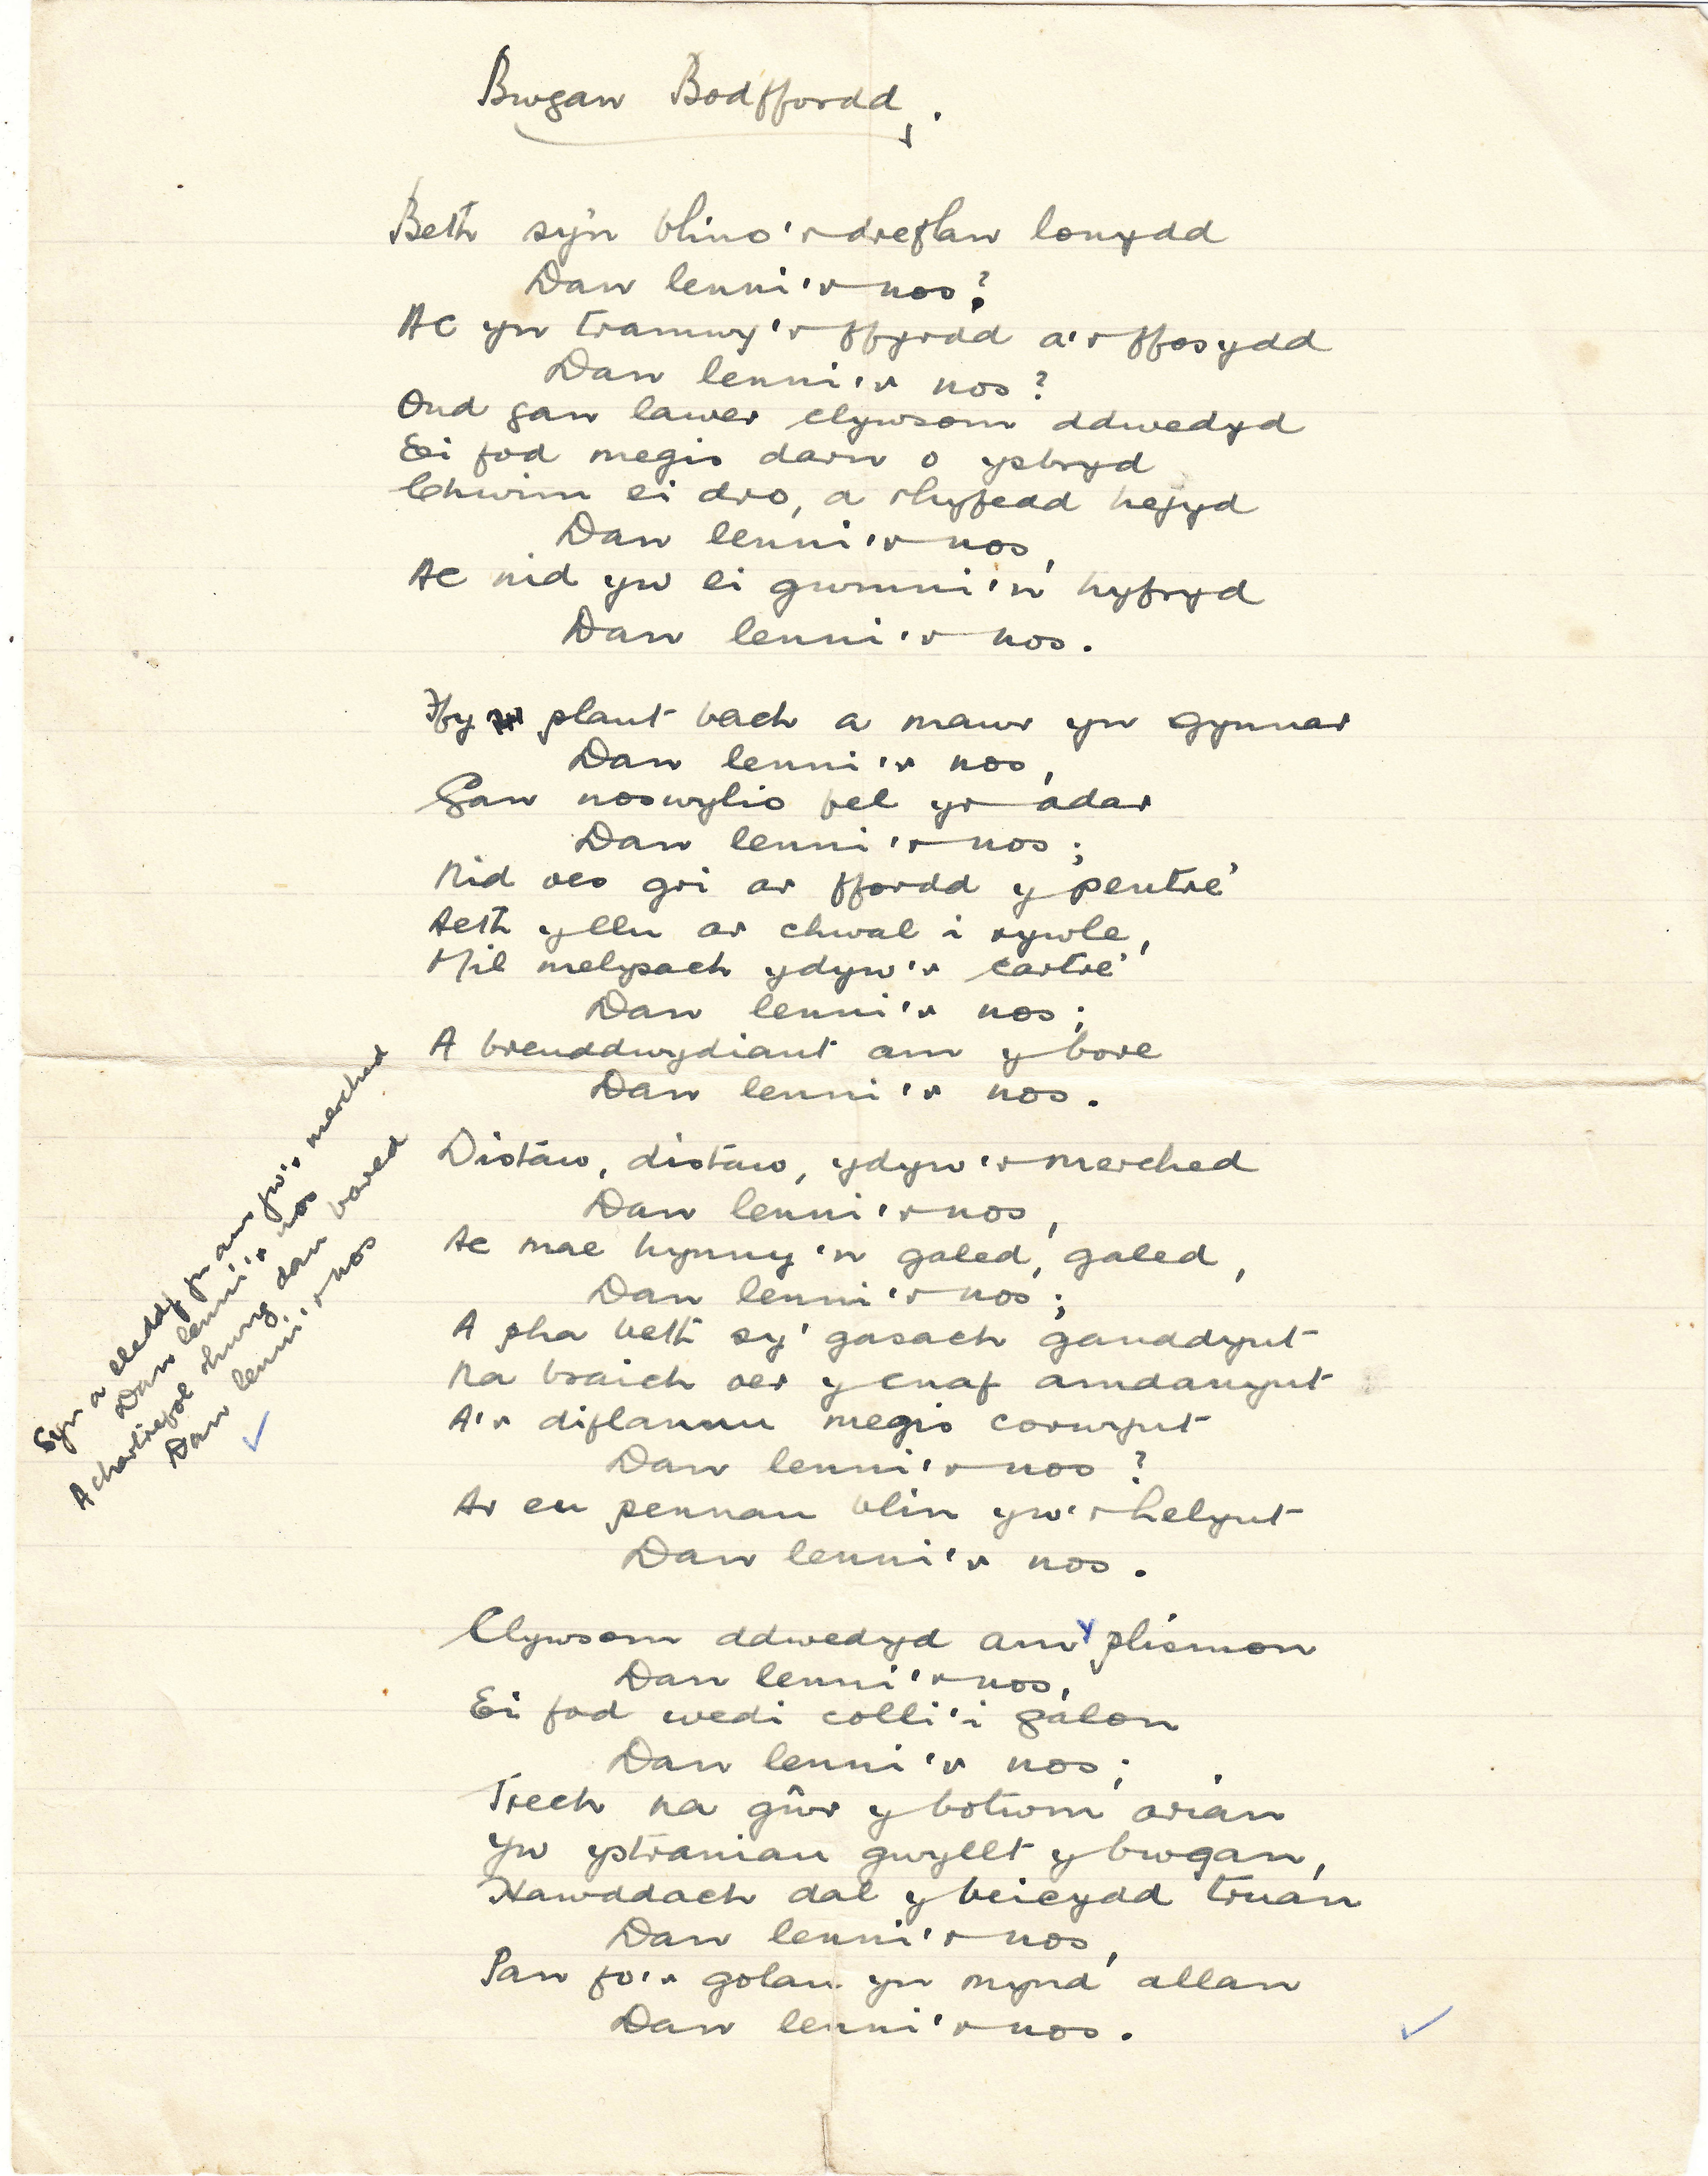 Bwgan Bodffordd.
Beth sy'n blino'r dreflan lonydd
Dan lenni'r nos?
Ac yn tramwy'r ffyrdd a'r ffosydd
Dan lenni'r nos?
Ond gan lawer clywsom ddwedyd
Ei fod megis darn o ysbryd
Chwim ei dro, a rhyfedd hefyd
Dan lenni'r nos,
Ac nid yw ei gwmni'n hyfryd
Dan lenni'r nos.
Ffy plant bach a mawr yn gynnar
Dan lenni'r nos,
Gan noswylio fel yr adar
Dan lenni'r nos;
Nid oes gri ar ffordd y pentre'
Aeth y llu ar chwal i rywle,
Mil melysach ydyw'r cartre'
Dan lenni'r nos;
A breuddwydiant am y bore
Dan lenni'r nos.
Distaw, distaw, ydyw'r merched
Dan lenni'r nos,
Ac mae hynny'n galed, galed,
Dan lenni'r nos;
A pha beth sy' gasach ganddynt
Na braich oer y cnaf amdanynt
A'r diflannu megis corwynt
Dan lenni'r nos?
Ar eu pennau blin yw'r helynt
Dan lenni'r nos.
Syn a lleddf yn awr yw'r merched
Dan lenni'r nos
A chartrefol rhwng dau bared
Dan lenni'r nos
Clywsom ddwedyd am y plismon
Dan lenni'r nos,
Ei fod wedi colli'i galon
Dan lenni'r nos;
Trech na gŵr y botwm arian
Yw ystranciau gwyllt y bwgan,
Hawddach dal y beicydd truan
Dan lenni'r nos,
Pan fo'r golau yn mynd allan
Dan lenni'r nos.